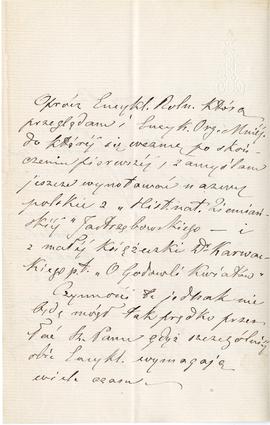 Oprócz Encykl. Roln. którą
przeglądam i Encyk. Org. Mniej.
do której się wezmę po skoń-
czeniu pierwszej, zamyślam
jeszcze wynotować nazwy
polskie z „Hist. nat. Ziemiań-
skiej" Jastrzębowskiego – i
z małej książeczki Dr Karwac-
kiego pt. „O Hodowli Kwiatów"
Czynności te jednak nie
będę mógł tak prędko przes-
łać Sz. Panu gdyż szczególniej
obie Encykl. wymagają
wiele czasu.